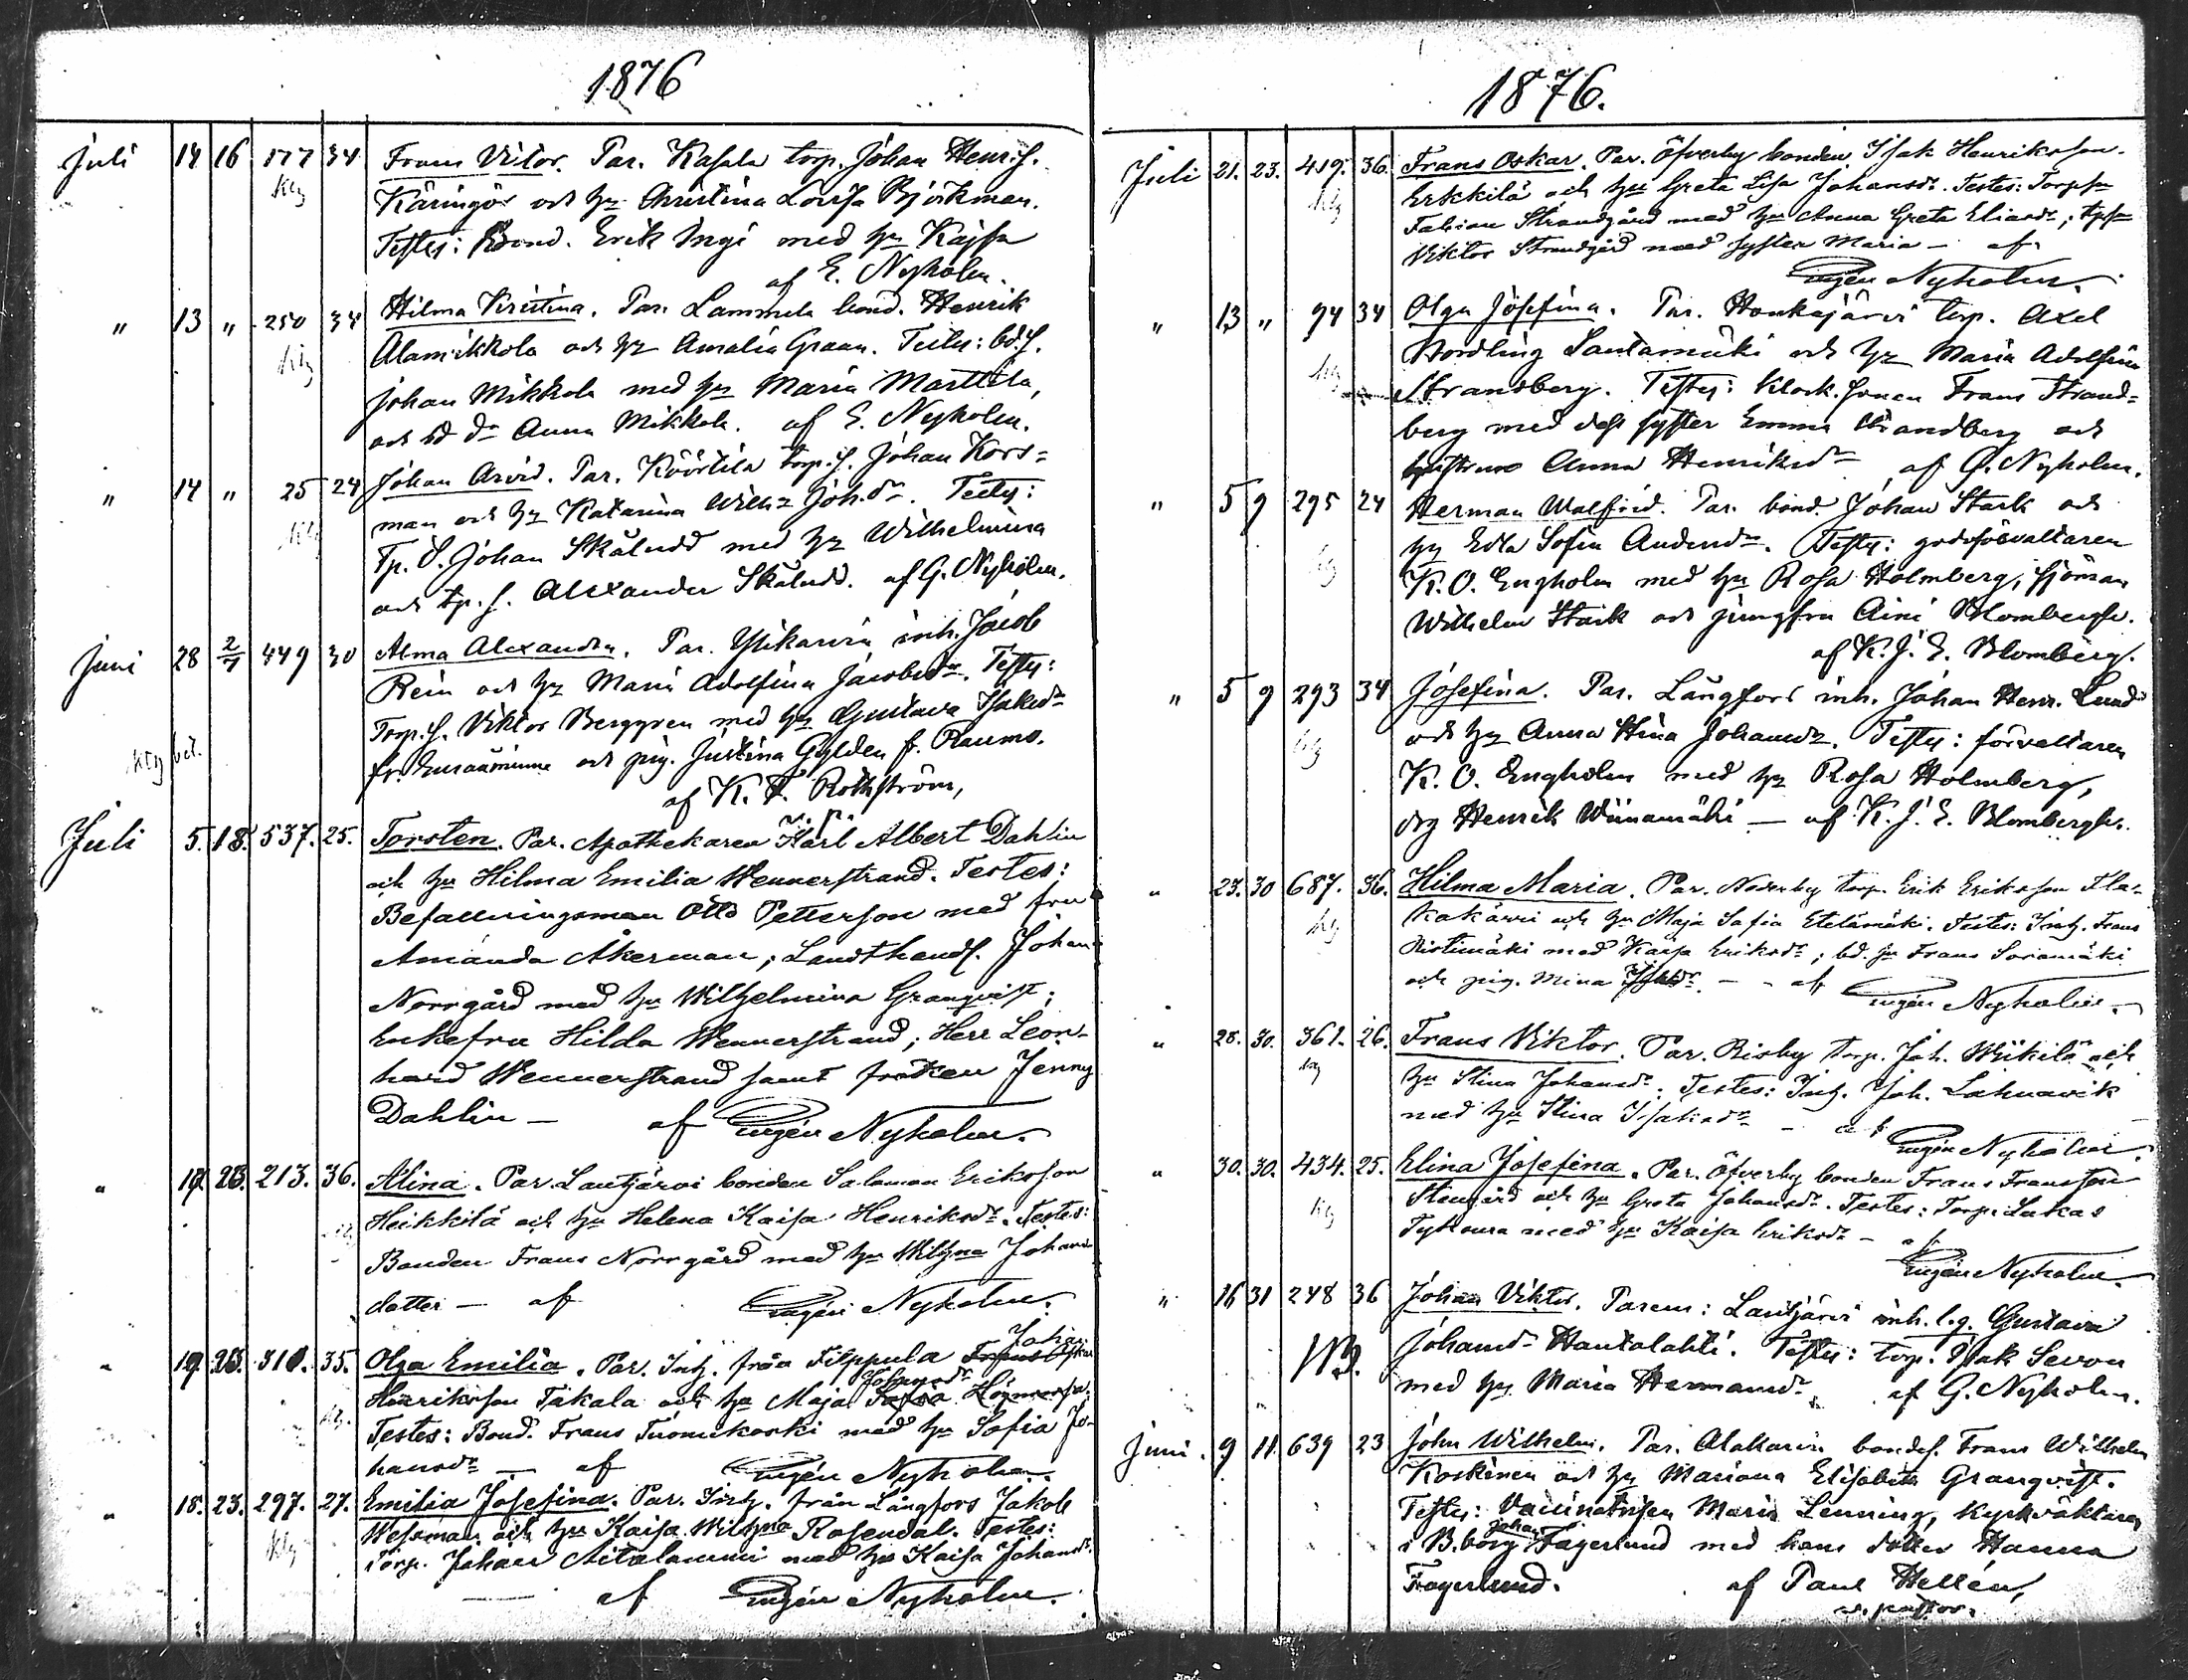 1876
Juli 14 16 177 34 Frans Victor. Par. Kasala torp. Johan Henr.s.
klg Käringör och hu Christina Lovisa Björkman.
Testes: Bond. Erik Ingi med hu Kajsa
af E. Nyholm.
" 13 " 250 34 Hilma Kristina. Par. Lammela bond. Henrik
klg Alamikkola och hu Amalia Graan. Testes: bd.s.
Johan Mikkola med hu Maria Marttila,
och bd dr Anna Mikkola. af E. Nyholm.
" 14 " 25 24 Johan Arvid. Par. Köörtilä torp.s. Johan Kors=
klg man och hu Katarina Wilh:a Joh.dr. Testes:
Tp. S. Johan Skäludd med hu Wilhelmina
och tp. s. Alexander Skäludd. af G. Nyholm.
Juni 28 2/7 449 30 Alma Alexandra. Par. Ylikarvia inh. Jacob
Rein och hu Maria Adolfina Jacobsdr. Testes:
Torp.s. Viktor Berggren med hu Gustava Isaksdr
klg bet. fr. Euraåminne och pig. Justina Gylden fr. Raumo.
af K. F. Rothström,
v. p.
Juli 5. 18. 537. 25. Torsten. Par. Apothekaren Karl Albert Dahlin
och hu Hilma Emilia Wennerstrand. Testes:
Befallningsman Otto Petterson med fru
Amanda Åkerman; Landthandl. Johan
Norrgård med hu Wilhelmina Granqvist;
Enkefru Hilda Wennerstrand; Herr Leon-
hard Wennerstrand samt fröken Jenny
Dahlin — af Eugén Nyholm.
" 19. 23. 213. 36. Alina. Par. Lautjärvi bonden Salomon Eriksson
Heikkilä och hu Helena Kaisa Henriksdr. Testes:
Bonden Frans Norrgård med hu Wilhma Johans
dotter — af Eugén Nyholm.
" 19. 23. 310. 35. Olga Emilia. Par. Inh. från Filppula Johan
Henriksson Takala och hu Maja Johansdr
klg. Testes: Bond. Frans Tuomikoski med hu Sofia Jo-
hansdr — af Eugén Nyholm.
" 18. 23. 297. 27. Emilia Josefina. Par. Inh. från Långfors Jakob
klg Wessman och hu Kaisa Wilhma Rosendal. Testes:
Torp. Johan Aitalammi med hu Kaisa Johansdr.
— af Eugén Nyholm.
1876.
Juli 21. 23. 419. 36. Frans Oskar. Par. Öfverby bonden Isak Henriksson
klg Erkkilä och hu Greta Lisa Johansdr. Testes: Torpsn
Fabian Strandgård med hu Anna Greta Eliasdr; tpsn
Viktor Strandgård med syster Maria — af
Eugén Nyholm.
" 13 " 94 34 Olga Josefina. Par. Honkajärvi torp. Axel
Nordling Santamäki och hu Maria Adolfina
klg Strandberg. Testes: Klock.sonen Frans Strand=
berg med dess syster Emma Strandberg och
hustrun Anna Henriksdr af G. Nyholm.
" 5 9 295 24 Herman Walfrid. Par. bond. Johan Stark och
hu Edla Sofia Andersdr. Testes: godsförvaltaren
klg K. O. Engholm med hu Rosa Holmberg; sjöman
Wilhelm Stark och jungfru Aini Blombergh.
af K. J. E. Blomberg.
" 5 9 293 34 Josefina. Par. Långfors inh. Johan Henr. Lund
klg och hu Anna Stina Johansdr. Testes: förvaltaren
K. O. Engholm med hu Rosa Holmberg,
drg Henrik Viinamäki — af K. J. E. Blombergh.
" 23. 30 687. 36. Hilma Maria. Par. Nederby torp. Erik Eriksson Fla-
klg kakärri och hu Maja Sofia Etelämäki. Testes: Inh. Frans
Ristimäki med Kaisa Eriksdr; bd. sn Frans Soramäki
och pig. Mina Isaksdr. — af Eugén Nyholm.
" 28. 30. 361. 26. Frans Viktor. Par. Risby torp. Joh. Wiikilä och
klg hu Stina Johansdr. Testes: Inh. Joh. Lahnavik
med hu Stina Isaksdr — af
Eugén Nyholm.
" 30. 30. 434. 25. Elina Josefina. Par. Öfverby bonden Frans Fransson
klg Stengård och hu Greta Johansdr. Testes: Torp. Lukas
med hu Kaisa Eriksdr — af
Eugén Nyholm.
" 16 31 248 36 Johan Viktor. Parens: Lautjärvi inh. l.q. Gustava
NB. Johansdr Hautalahti. Testes: torp. Isak Sevon
med hu Maria Hermansdr. af G. Nyholm.
Juni. 9 11. 639 23 John Wilhelm. Par. Alakarvia bondes. Frans Wilhelm
Koskinen och hu Mariana Elisabeth Granqvist.
Testes: Vaccinatrisen Maria Lenning, kyrkväktaren
i B.borg Johan Fagerlund med hans dotter Hanna
Fagerlund. af Paul Hellén,
v. pastor.